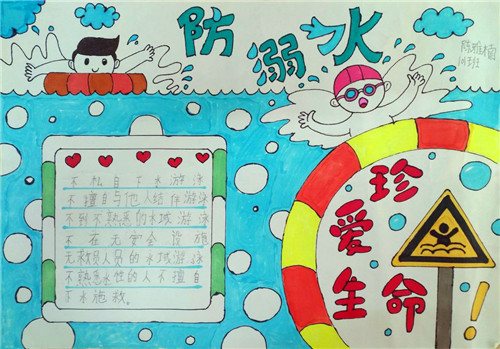 防溺水
珍
爱
生命!
不私自下水游泳
不擅自与他人结伴游泳
不到不熟悉的水域游泳
不在无安全设施
无救员人员的水域游泳
不熟悉水性的人不擅自
下水施救。